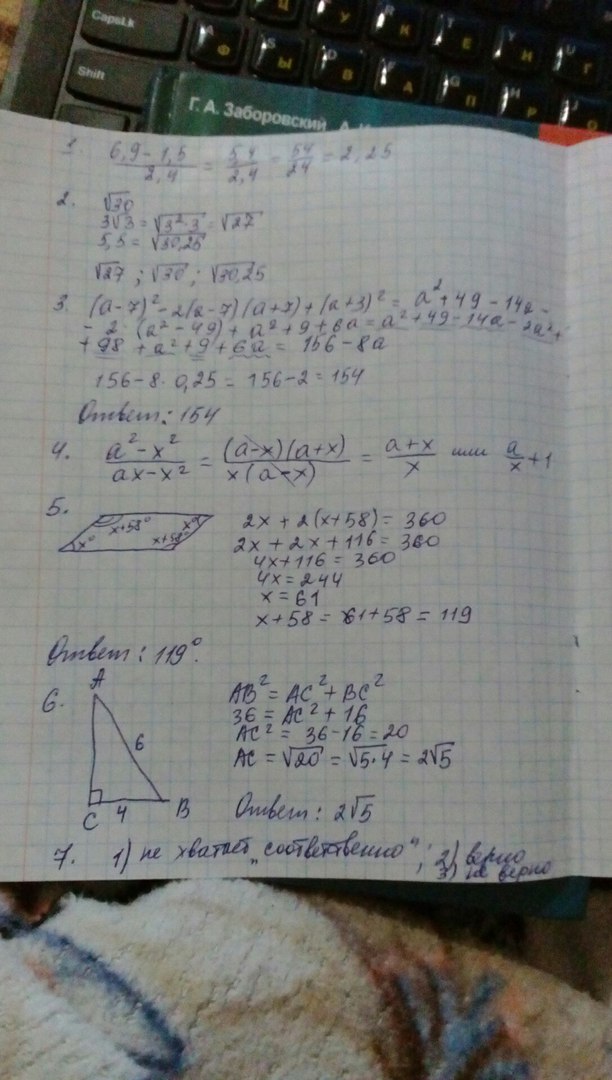 CapsLk
Shift
Г. А. Заборовский, А.
1. (6,9 - 1,5)/2,4 = 5,4/2,4 = 54/24 = 2,25
2. √30
3√3 = √(3²·3) = √27
5,5 = √30,25
√27 ; √30 ; √30,25
3. (a-7)² - 2(a-7)(a+7) + (a+3)² = a² + 49 - 14a -
- 2·(a² - 49) + a² + 9 + 6a = a² + 49 - 14a - 2a² +
+ 98 + a² + 9 + 6a = 156 - 8a
156 - 8 · 0,25 = 156 - 2 = 154
Ответ: 154
4. (a² - x²)/(ax - x²) = (a-x)(a+x)/x(a-x) = (a+x)/x или a/x + 1
5. x° x+58° x° x+58°
2x + 2(x+58) = 360
2x + 2x + 116 = 360
4x + 116 = 360
4x = 244
x = 61
x + 58 = 61 + 58 = 119
Ответ: 119°.
6. A 6 C 4 B
AB² = AC² + BC²
36 = AC² + 16
AC² = 36 - 16 = 20
AC = √20 = √5·4 = 2√5
Ответ: 2√5
7. 1) не хватает „соответственно"; 2) верно
3) не верно